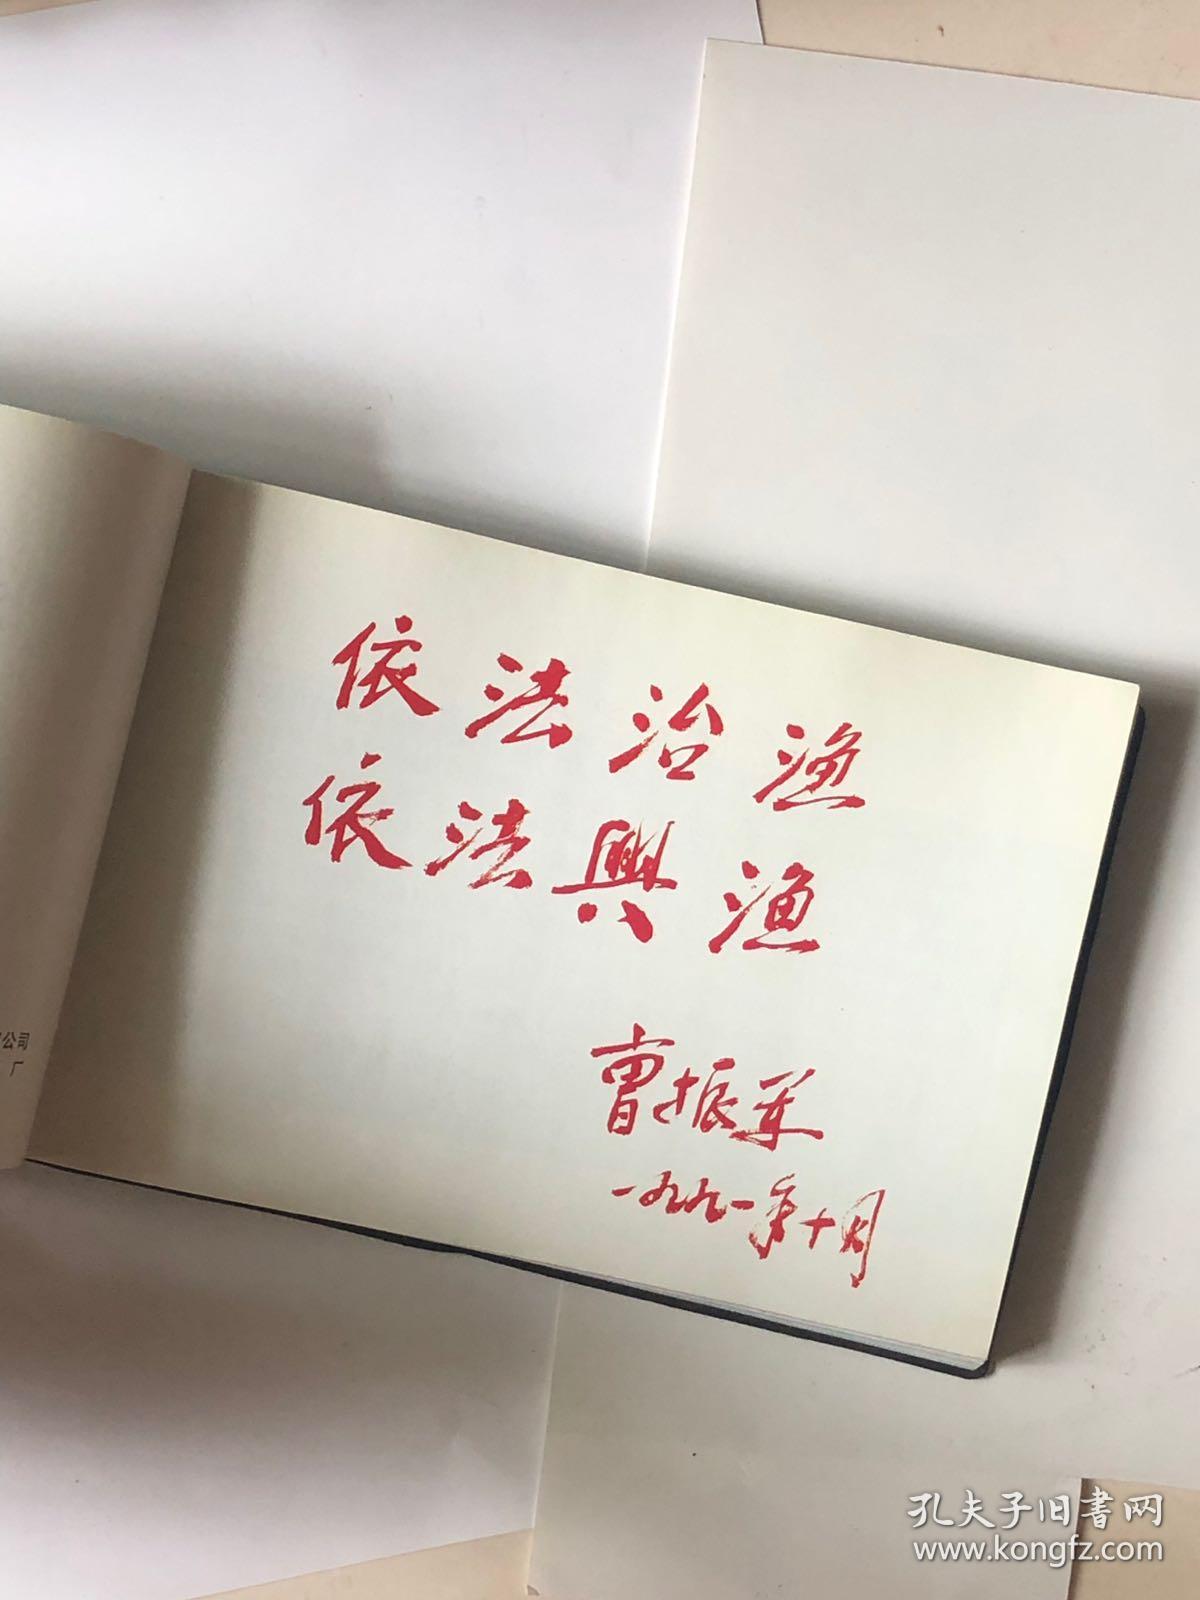 依法治渔
依法興渔
曹振军
一九九一年十月
公司
厂
孔夫子旧书网
www.kongfz.com